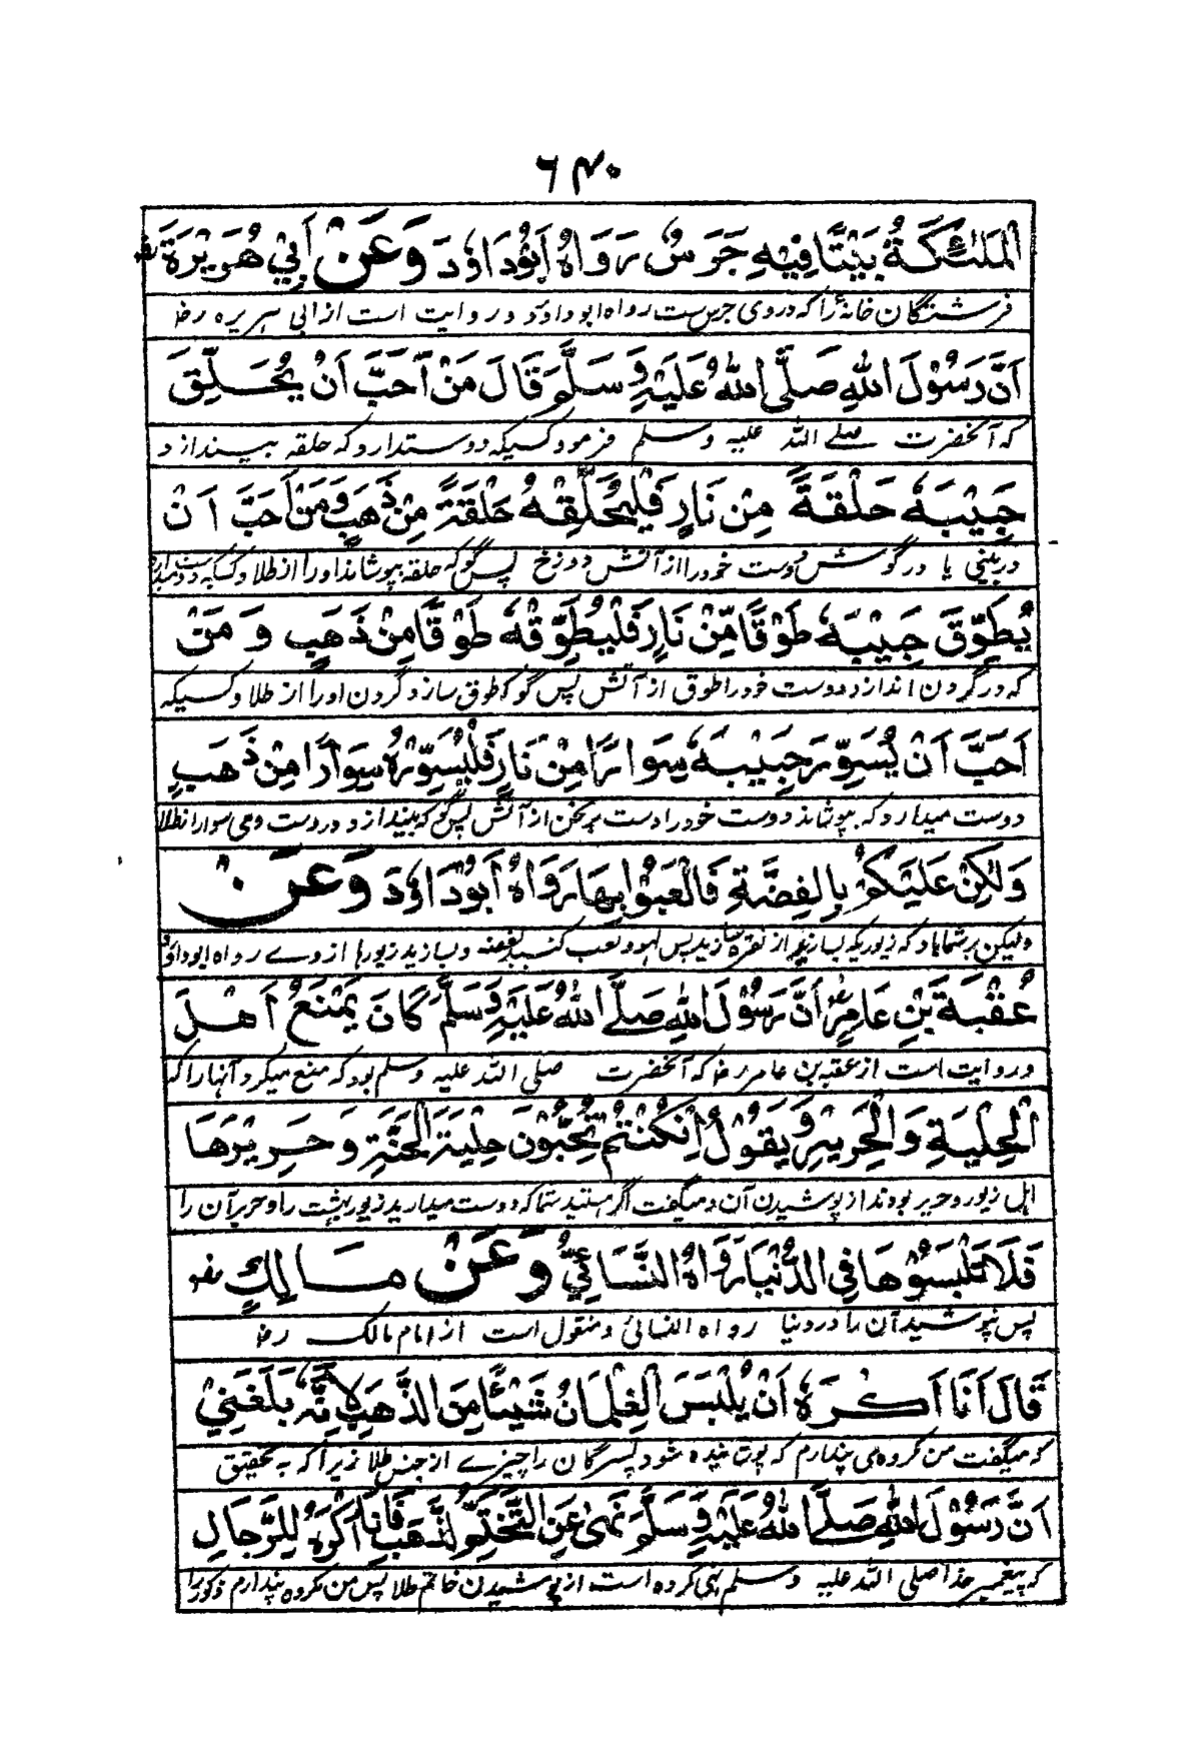 ۶۴۰
الْمَلٰئِكَةُ بَيْتًا فِيْهِ جَرَسٌ رَوَاهُ اَبُوْدَاوٗدَ وَعَنْ اَبِيْ هُرَيْرَةَ رضـ
فرشتگان خانهٔ را که در وی جرس ست رواه ابو داوٗد و روایت است از ابی هریره رضـ
اَنَّ رَسُوْلَ اللهِ صَلَّى اللهُ عَلَيْهِ وَسَلَّمَ قَالَ مَنْ اَحَبَّ اَنْ يُحَلِّقَ
که آنحضرت صلے الله علیه وسلم فرمود کسیکه دوستدارد که حلقه بیندازد
حَبِيْبَهٗ حَلْقَةً مِنْ نَارٍ فَلْيُحَلِّقْهُ حَلْقَةً مِنْ ذَهَبٍ وَمَنْ اَحَبَّ اَنْ
در بینی یا در گوش دوست خود را از آتش دوزخ پس گو که حلقه بپوشاند او را از طلا و کسیکه دوستمیدارد
يُطَوِّقَ حَبِيْبَهٗ طَوْقًا مِّنْ نَارٍ فَلْيُطَوِّقْهُ طَوْقًا مِنْ ذَهَبٍ وَمَنْ
که در گردن اندازد دوست خود را طوق از آتش پس گو که طوق سازد گردن او را از طلا و کسیکه
اَحَبَّ اَنْ يُسَوِّرَ حَبِيْبَهٗ سِوَارًا مِنْ نَارٍ فَلْيُسَوِّرْهُ سِوَارًا مِنْ ذَهَبٍ
دوست میدارد که بپوشاند دوست خود را دست برنجن از آتش پس گو که بیندازد در دست وی سوار از طلا
وَلٰكِنْ عَلَيْكُمْ بِالْفِضَّةِ فَالْعَبُوْا بِهَا رَوَاهُ اَبُوْدَاوٗدَ وَعَنْ
ولیکن بر شما باد که زیوریکه بسازید از نقره سازید پس لهو و لعب کنید بفضه و بسازید زیورها از وے رواه ابوداوٗد
عُقْبَةَ بْنِ عَامِرٍ رضـ اَنَّ رَسُوْلَ اللهِ صَلَّى اللهُ عَلَيْهِ وَسَلَّمَ كَانَ يَمْنَعُ اَهْلَ
و روایت است از عقبه بن عامر رضـ که آنحضرت صلی الله علیه وسلم بود که منع میکرد آنها را که
الْحِلْيَةِ وَالْحَرِيْرِ وَيَقُوْلُ اِنْ كُنْتُمْ تُحِبُّوْنَ حِلْيَةَ الْجَنَّةِ وَحَرِيْرَهَا
اهل زیور و حریر بودند از پوشیدن آن و میگفت اگر هستید شما که دوست میدارید زیور بهشت را و حریر آن را
فَلَا تَلْبَسُوْهَا فِي الدُّنْيَا رَوَاهُ النَّسَائِيُّ وَعَنْ مَالِكٍ رضـ
پس نپوشید آن را در دنیا رواه النسائی و منقول است از امام مالک رضـ
قَالَ اَنَا اَكْرَهُ اَنْ يُلْبَسَ الْغِلْمَانُ شَيْئًا مِنَ الذَّهَبِ لِاَنَّهٗ بَلَغَنِيْ
که میگفت من مکروه می پندارم که پوشیده شود پسرگان را چیزے از جنس طلا زیرا که به تحقیق
اَنَّ رَسُوْلَ اللهِ صَلَّى اللهُ عَلَيْهِ وَسَلَّمَ نَهٰى عَنِ التَّخَتُّمِ الذَّهَبِ فَاَنَا اَكْرَهُ لِلرِّجَالِ
که پیغمبر خدا صلی الله علیه وسلم نهی کرده است از پوشیدن خاتم طلا پس من مکروه پندارم ذکور را